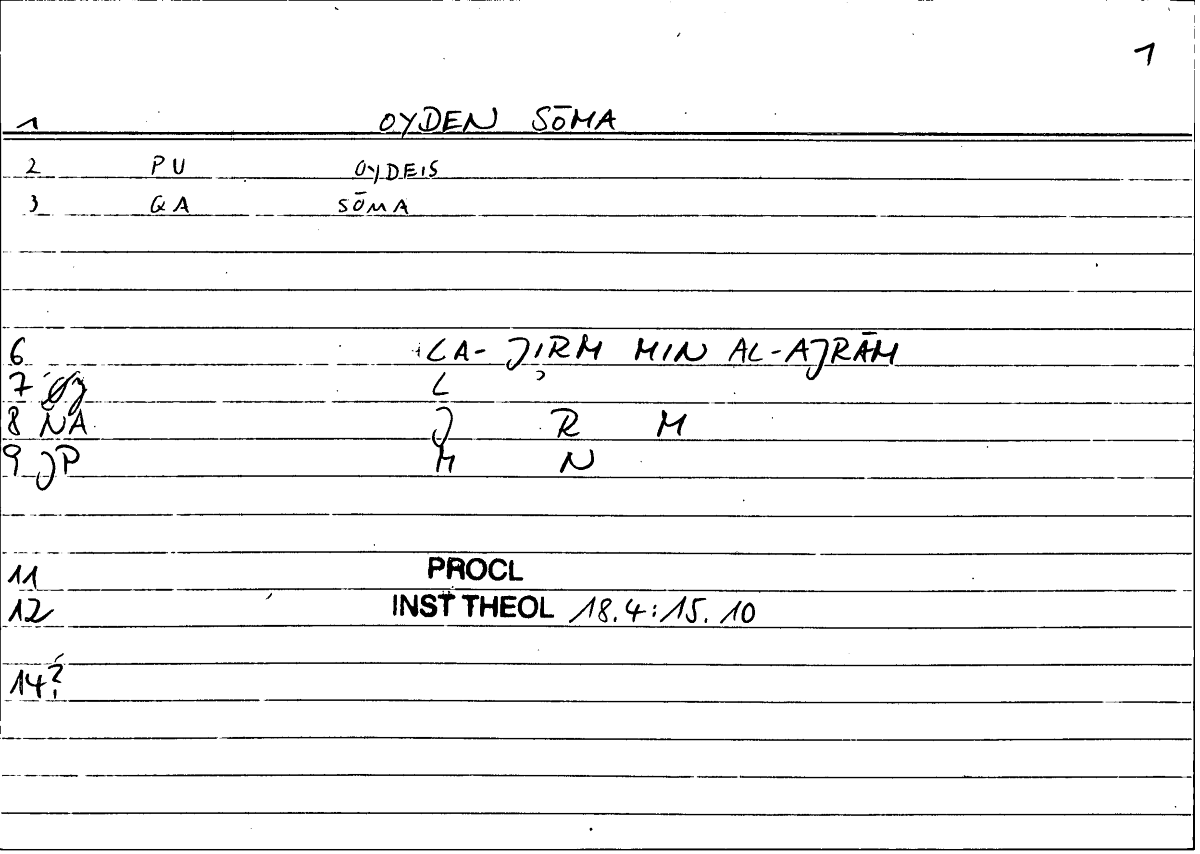 1
1 OYDEN SŌMA
2 PU OYDEIS
3 QA SŌMA
6 LA- JIRM MIN AL-AJRĀM
7 L ʾ
8 NA J R M
9 JP M N
11 PROCL
12 INST THEOL 18.4:15.10
14?